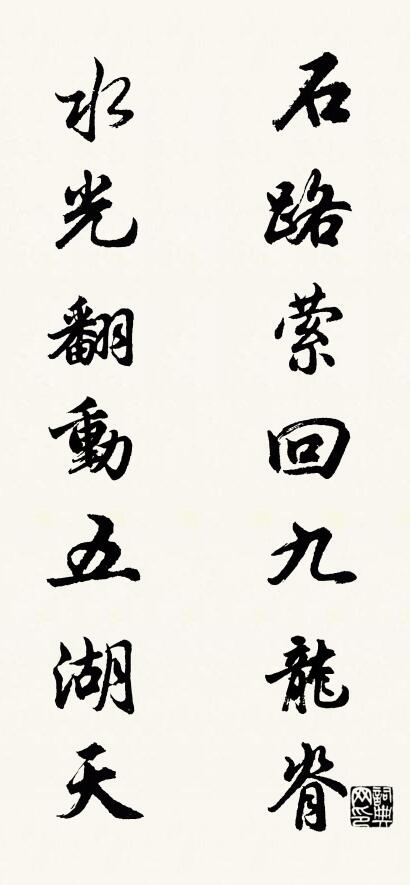 石路萦回九龍脊
水光翻動五湖天
詞典網印